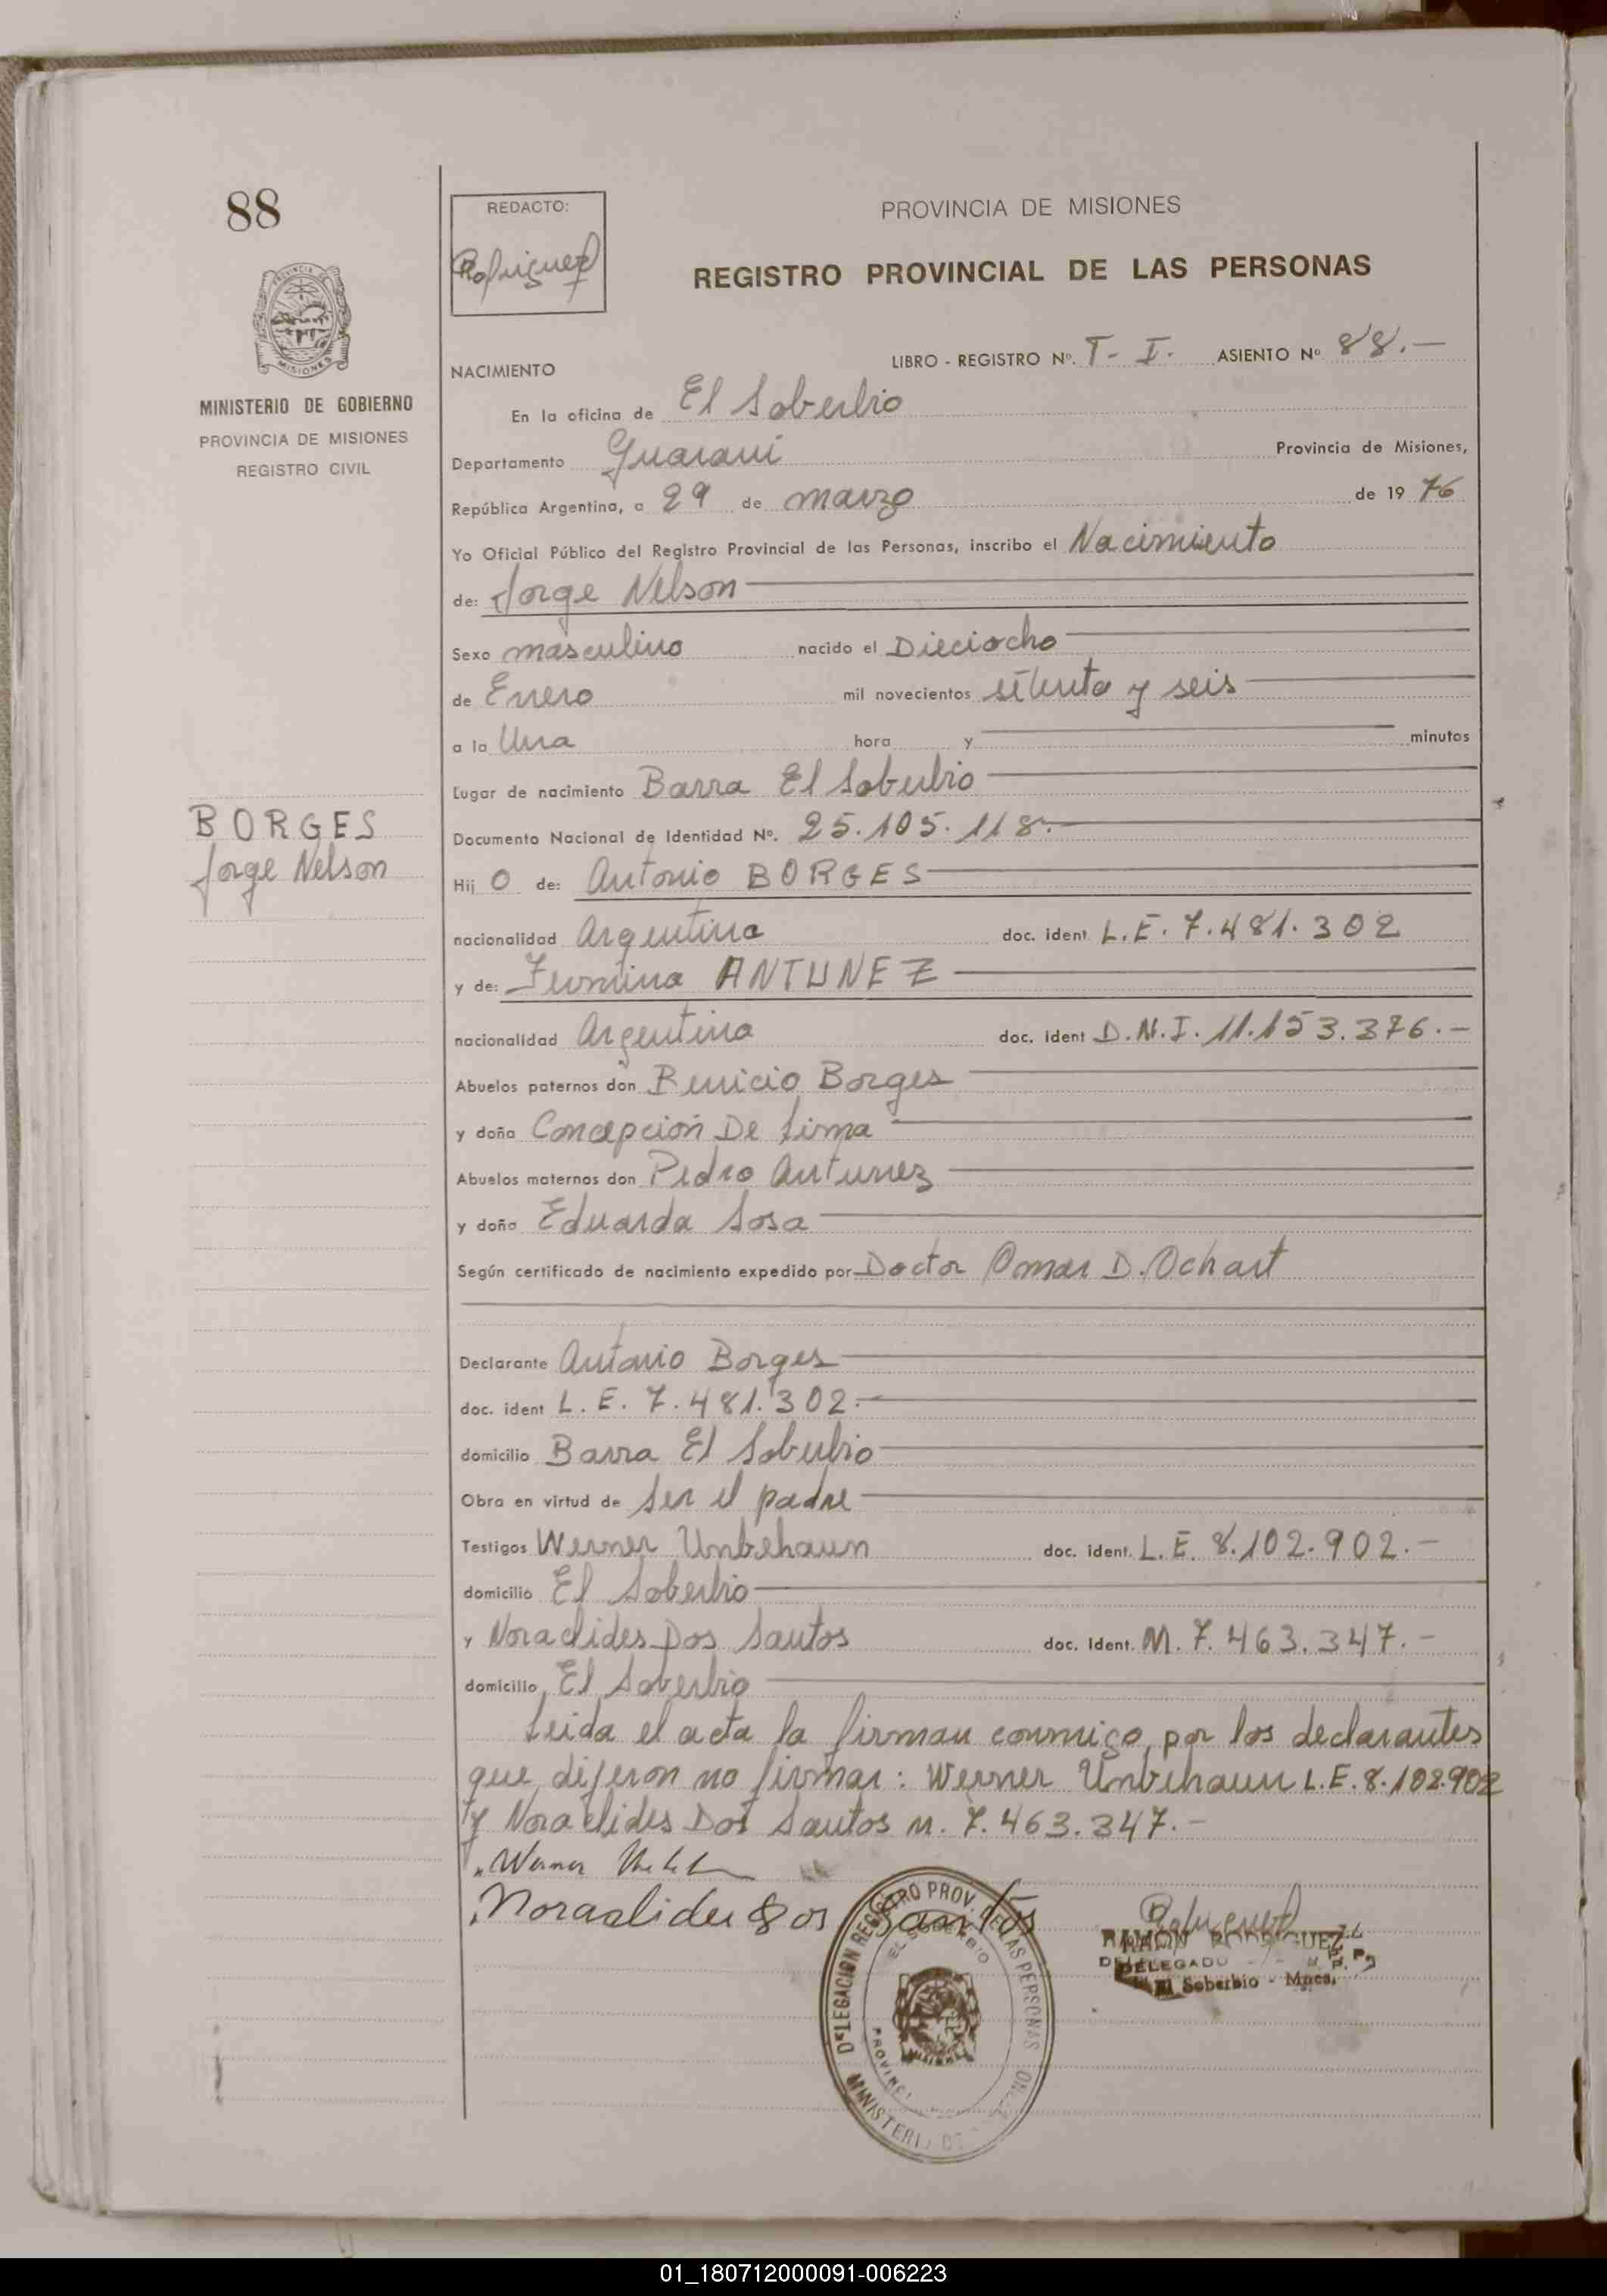 88
REDACTO:
Rodriguez
PROVINCIA DE MISIONES
REGISTRO PROVINCIAL DE LAS PERSONAS
PROVINCIA DE
MISIONES
MINISTERIO DE GOBIERNO
PROVINCIA DE MISIONES
REGISTRO CIVIL
LIBRO - REGISTRO Nº. T- I. ASIENTO Nº 88.-
NACIMIENTO
En la oficina de El Soberbio
Departamento Guaraní Provincia de Misiones,
República Argentina, a 29 de marzo de 19 76
Yo Oficial Público del Registro Provincial de las Personas, inscribo el Nacimiento
de: Jorge Nelson
Sexo masculino nacido el Dieciocho
de Enero mil novecientos setenta y seis
a la Una hora y minutos
Lugar de nacimiento Barra El Soberbio
BORGES
Jorge Nelson
Documento Nacional de Identidad Nº. 25.105.118.-
Hij o de: Antonio BORGES
nacionalidad Argentina doc. ident L.E. 7.481.302
y de: Fermina ANTUNEZ
nacionalidad Argentina doc. ident D.N.I. 11.153.376.-
Abuelos paternos don Benicio Borges
y doña Concepción De Lima
Abuelos maternos don Pedro Antunez
y doña Eduarda Sosa
Según certificado de nacimiento expedido por Doctor Omar D. Ochart
Declarante Antonio Borges
doc. ident L.E. 7.481.302.-
domicilio Barra El Soberbio
Obra en virtud de ser el padre
Testigos Werner Unbehaun doc. ident. L.E. 8.102.902.-
domicilio El Soberbio
y Noraclides Dos Santos doc. ident. M. 7.463.347.-
domicilio El Soberbio
Leida el acta la firman conmigo, por los declarantes
que dijeron no firmar: Werner Unbehaun L.E. 8.102.902
y Noraclides Dos Santos M. 7.463.347.-
Werner
Noraclides Dos Santos
DELEGACION REGISTRO PROV. DE LAS PERSONAS
EL SOBERBIO
MINISTERIO DE
RAMON RODRIGUEZ
DELEGADO
El Soberbio - Mnes.
01_180712000091-006223